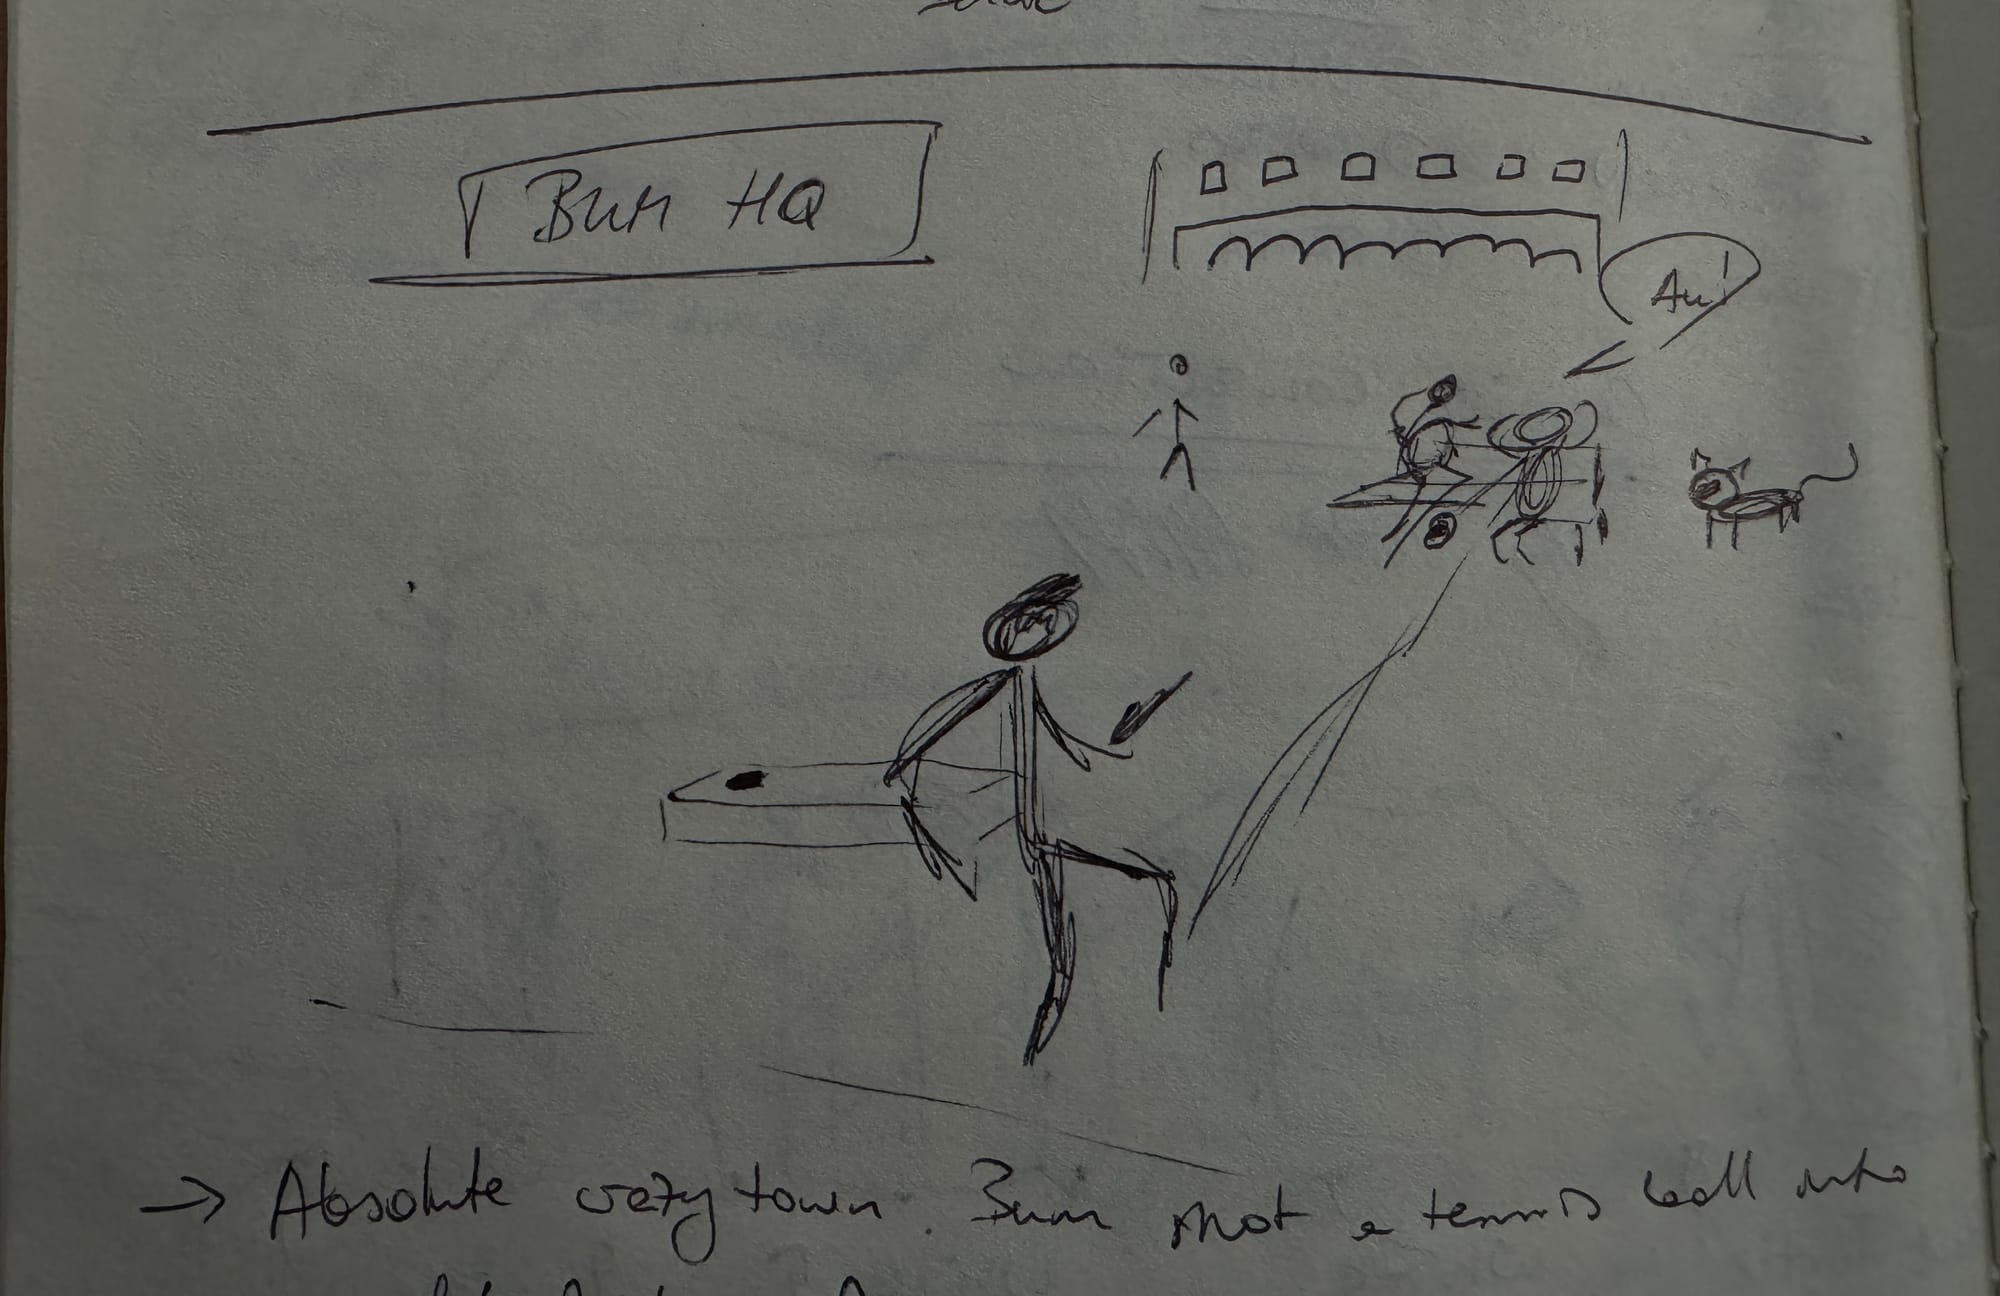 BUM HQ
Au!
→ Absolute crazy town. Bum shot a tennis ball into